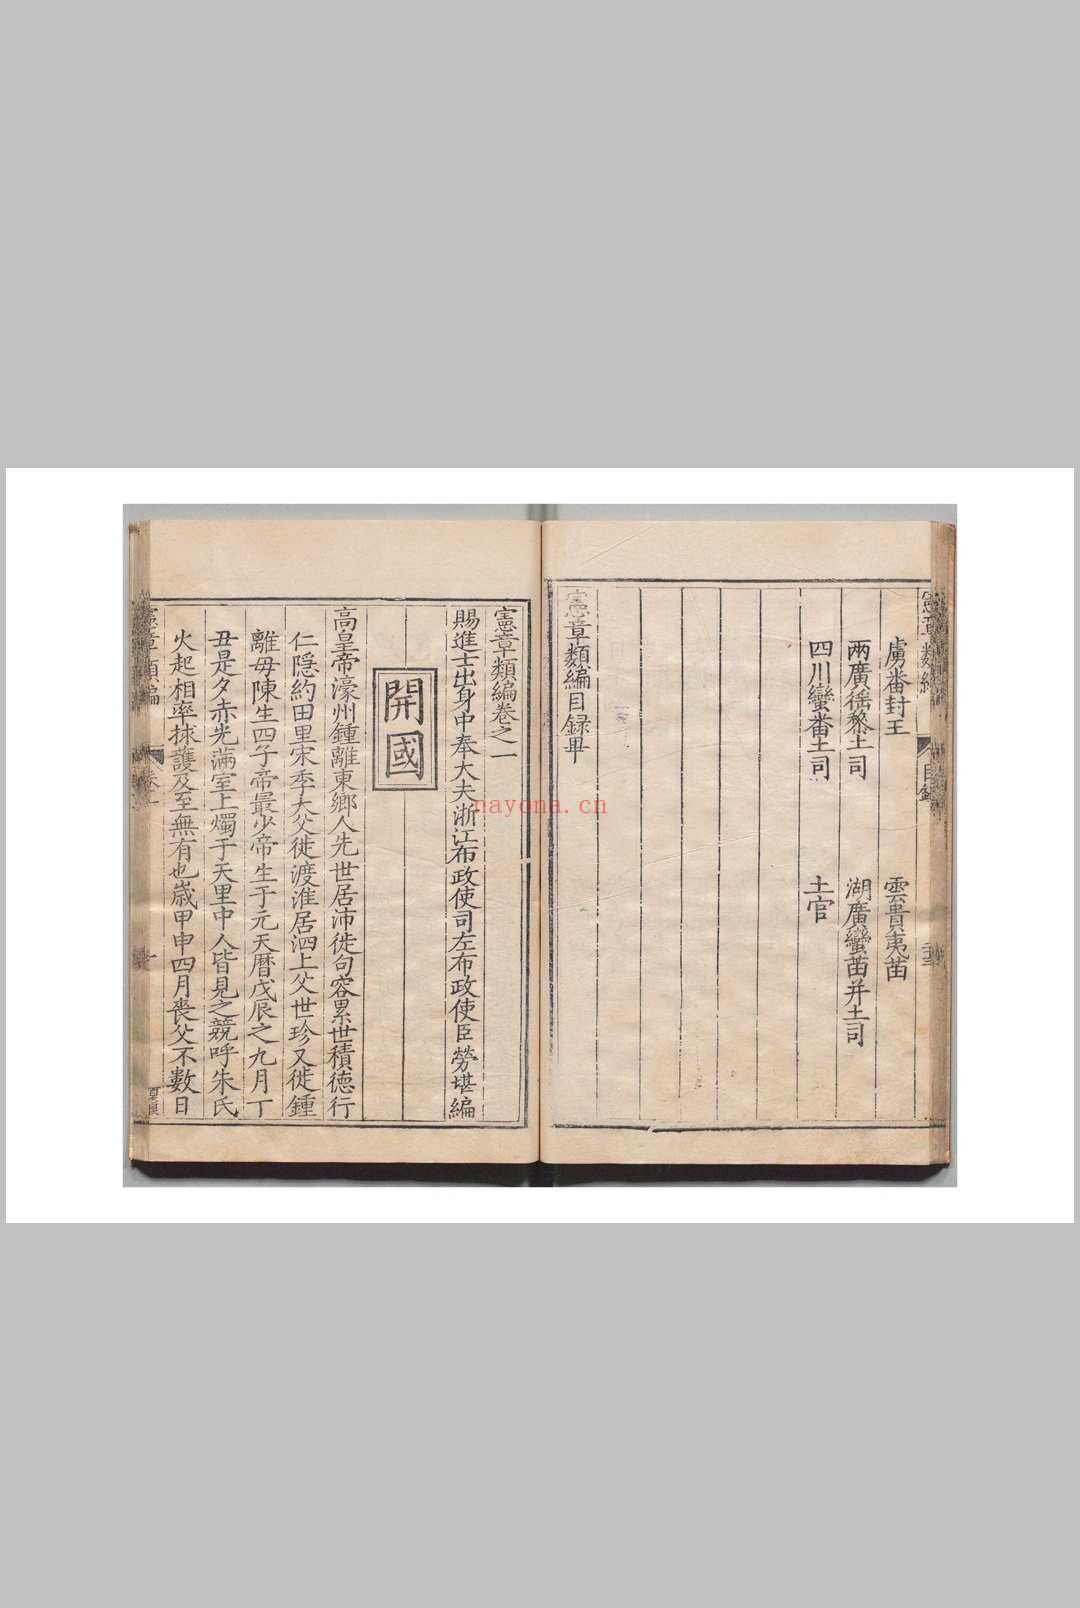 憲章類編
目錄
虜番封王 雲貴夷苗
兩廣徭黎土司 湖廣蠻苗并土司
四川蠻番土司 土官
憲章類編目録畢
憲章類編卷之一
賜進士出身中奉大夫浙江布政使司左布政使臣勞堪編
開國
高皇帝濠州鍾離東鄉人先世居沛徙句容累世積德行
仁隱約田里宋季大父徙渡淮居泗上父世珍又徙鍾
離母陳生四子帝最少帝生于元天曆戊辰之九月丁
丑是夕赤光滿室上燭于天里中人皆見之競呼朱氏
火起相率捄護及至無有也嵗甲申四月喪父不數日
憲章類編
卷一
一
nayona.cn